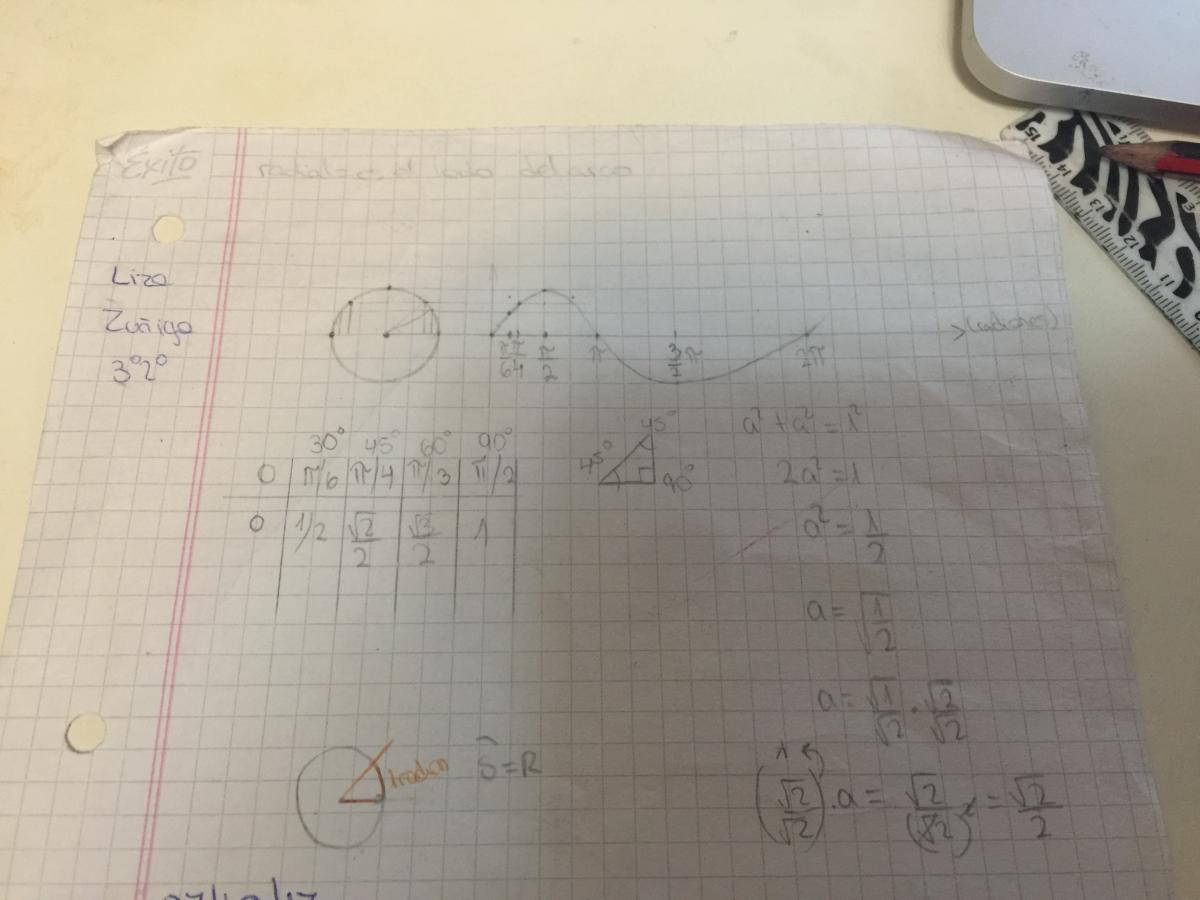 Exito
radial es el lado del arco
Lizo
Zuñiga
3°2°
π/6 π/4 π/2 π 3/2 π 2π > (radianes)
30° 45° 60° 90°
0 π/6 π/4 π/3 π/2
0 1/2 √2/2 √3/2 1
45°
45° 90°
a² + a² = 1²
2a² = 1
a² = 1/2
a = √1/2
a = √1/√2 · √2/√2
1
(√2/√2) . a = √2/(√2)² = √2/2
1 radian
S = R
15 13 12 11